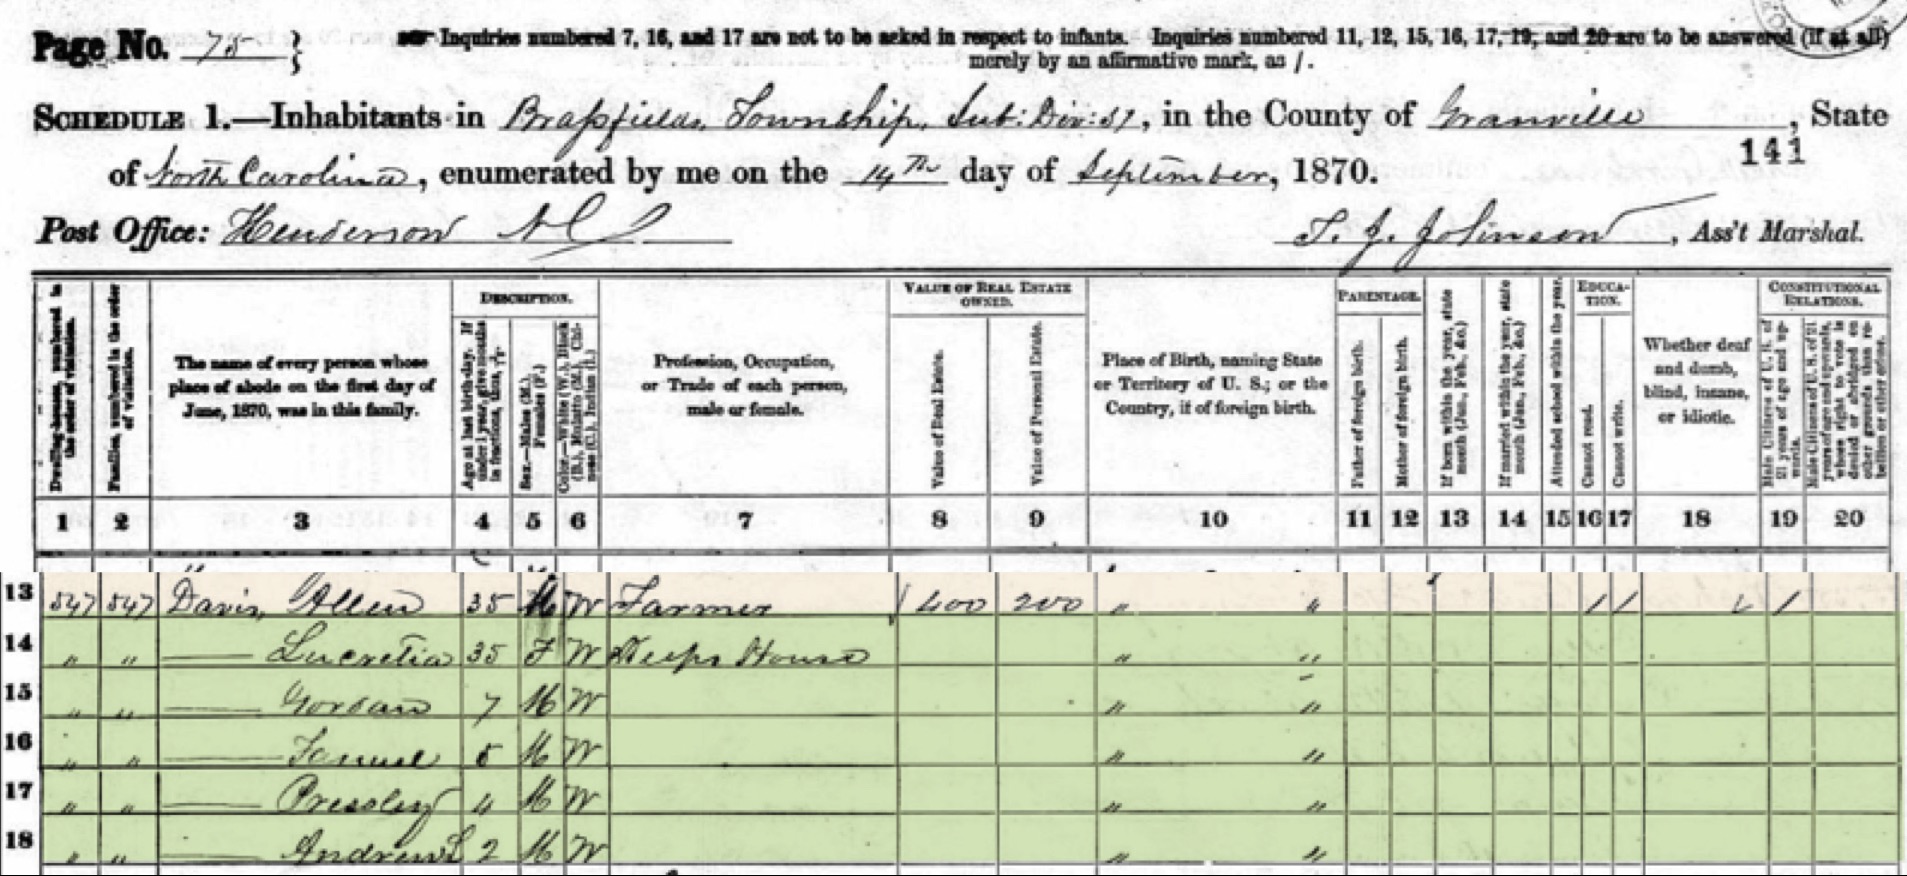 Page No. 75 } Inquiries numbered 7, 16, and 17 are not to be asked in respect to infants. Inquiries numbered 11, 12, 15, 16, 17, 19, and 20 are to be answered (if at all)
merely by an affirmative mark, as /.
SCHEDULE 1.—Inhabitants in Brassfields Township, Sub: Div: 51, in the County of Granville, State
141
of North Carolina, enumerated by me on the 14th day of September, 1870.
Post Office: Henderson NC T. J. Johnson, Ass't Marshal.
Dwelling-houses, numbered in the order of visitation.
Families, numbered in the order of visitation.
The name of every person whose
place of abode on the first day of
June, 1870, was in this family.
DESCRIPTION.
Age at last birth-day. If under 1 year, give months in fractions, thus,
Sex.—Males (M.), Females (F.)
Color.—White (W.), Black (B.), Mulatto (M.), Chinese (C.), Indian (I.)
Profession, Occupation,
or Trade of each person,
male or female.
VALUE OF REAL ESTATE
OWNED.
Value of Real Estate.
Value of Personal Estate.
Place of Birth, naming State
or Territory of U. S.; or the
Country, if of foreign birth.
PARENTAGE.
Father of foreign birth.
Mother of foreign birth.
If born within the year, state month (Jan., Feb., &c.)
If married within the year, state month (Jan., Feb., &c.)
Attended school within the year.
EDUCA-
TION.
Cannot read.
Cannot write.
Whether deaf
and dumb,
blind, insane,
or idiotic.
CONSTITUTIONAL
RELATIONS.
Male Citizens of U. S. of 21 years of age and upwards.
Male Citizens of U. S. of 21 years of age and upwards, whose right to vote is denied or abridged on other grounds than rebellion or other crime.
1 2 3 4 5 6 7 8 9 10 11 12 13 14 15 16 17 18 19 20
13 547 547 Davis, Allen 35 M W Farmer 400 200 " " / / /
14 " " —— Lucretia 35 F W Keeps House " "
15 " " —— Gordan 7 M W " "
16 " " —— 5 M W " "
17 " " —— Pressley 4 M W " "
18 " " —— Andrew L 2 M W " "